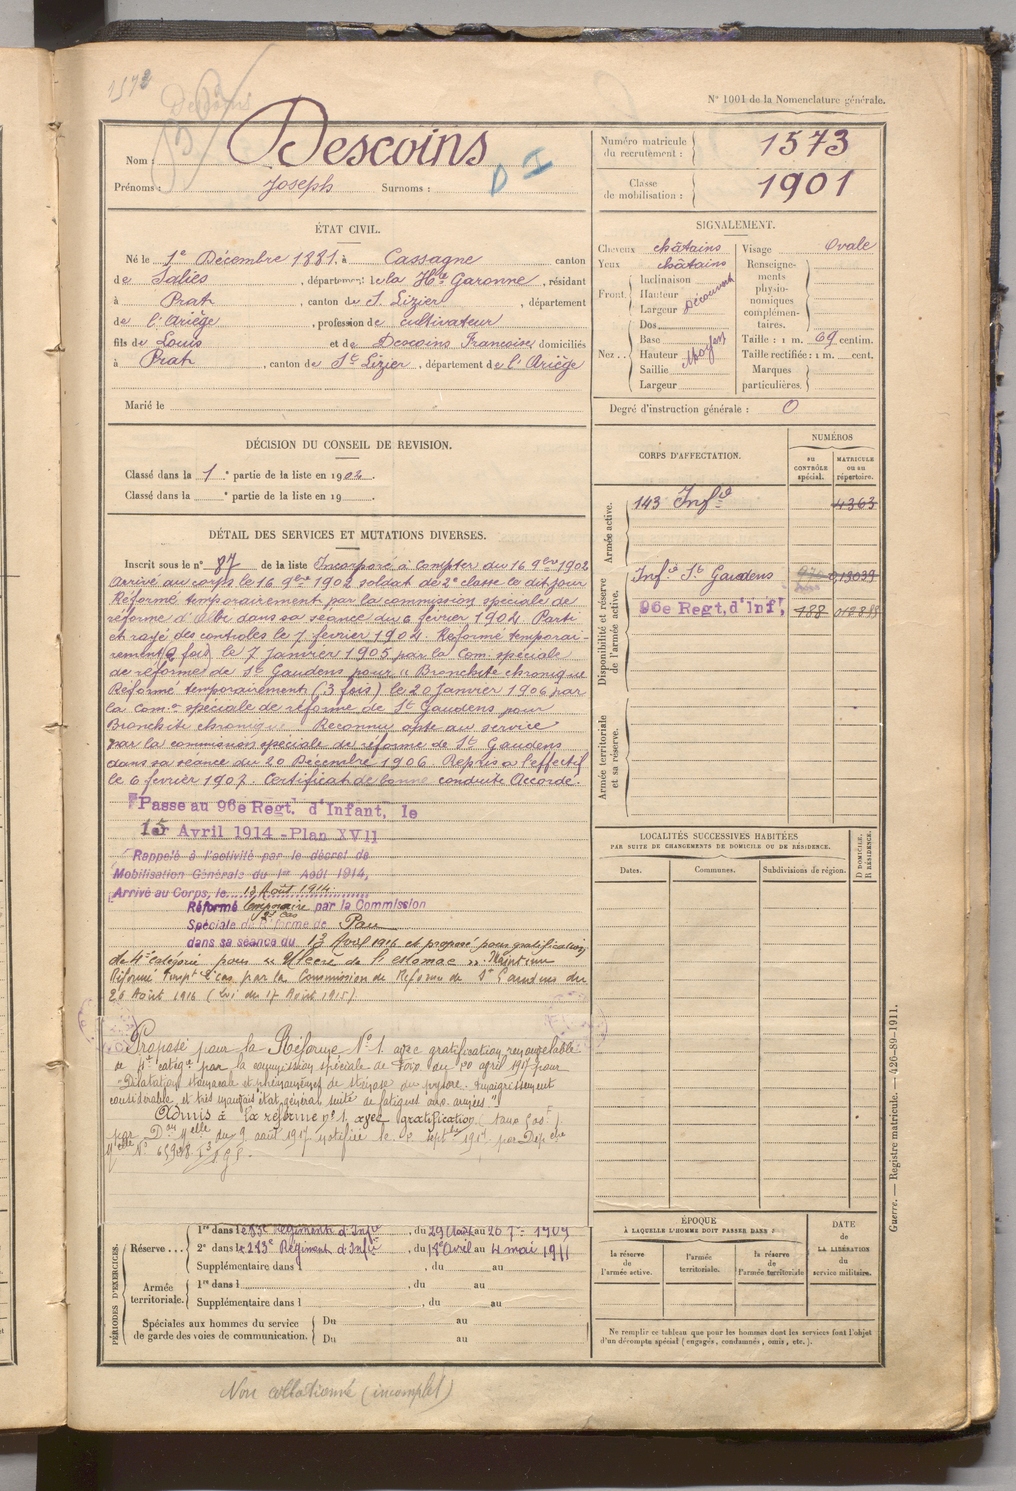 1573
Descoins
N° 1001 de la Nomenclature générale.
Nom : Descoins
Prénoms : Joseph Surnoms : D I
Numéro matricule du recrutement : 1573
Classe de mobilisation : 1901
ÉTAT CIVIL.
Né le 1e Décembre 1881, à Cassagne canton
de Salies, département de la Hte Garonne, résidant
à Prat, canton de St. Lizier, département
de l'Ariège, profession de cultivateur
fils de Louis et de Descoins Françoise domiciliés
à Prat, canton de St Lizier, département de l'Ariège
Marié le
SIGNALEMENT.
Cheveux châtains
Yeux châtains
Front. Inclinaison
Hauteur
Largeur
Découvert
Nez.. Dos
Base
Hauteur
Saillie
Largeur
Moyen
Visage Ovale
Renseignements physionomiques complémentaires.
Taille : 1 m. 69 centim.
Taille rectifiée : 1 m. cent.
Marques particulières.
Degré d'instruction générale : 0
DÉCISION DU CONSEIL DE REVISION.
Classé dans la 1e partie de la liste en 1902.
Classé dans la e partie de la liste en 19
CORPS D'AFFECTATION.
NUMÉROS
au CONTRÔLE spécial.
MATRICULE ou au répertoire.
Armée active.
143 Infie 4363
Disponibilité et réserve de l'armée active.
Infie St Gaudens 013039
96e Regt. d'Inf. 188
Armée territoriale et sa réserve.
DÉTAIL DES SERVICES ET MUTATIONS DIVERSES.
Inscrit sous le n° 87 de la liste Incorporé à compter du 16 9bre 1902
Arrivé au corps le 16 9bre 1902 soldat de 2e classe le dit jour
Réformé temporairement par la commission spéciale de
réforme d'Albi dans sa séance du 6 février 1904. Parti
et rayé des contrôles le 7 février 1904. Réformé temporai-
rement (2 fois) le 7 Janvier 1905 par la Com. spéciale
de réforme de St Gaudens pour "Bronchite chronique
Réformé temporairement (3 fois) le 20 Janvier 1906 par
la Comon spéciale de réforme de St Gaudens pour
Bronchite chronique. Reconnu apte au service
par la commission spéciale de réforme de St Gaudens
dans sa séance du 20 Décembre 1906. Repris à l'effectif
le 6 février 1907. Certificat de bonne conduite Accordé.
Passe au 96e Regt. d'Infant, le
15 Avril 1914 - Plan XVII
Rappelé à l'activité par le décret de
Mobilisation Générale du 1er Août 1914,
Arrivé au Corps, le 13 Août 1914
Réformé temporaire par la Commission
2e cas
Spéciale de réforme de Pau
dans sa séance du 13 Avril 1916 et proposé pour gratification
de 4e catégorie pour "Ulcère de l'estomac". Maintenu
Réformé Tempt 2e cas par la Commission de Réforme de St Gaudens du
26 Août 1916 (Loi du 17 Août 1915).
Proposé pour la Réforme N° 1 avec gratification renouvelable
de 4e catégie par la commission spéciale de Foix du 20 avril 1917 pour
"Dilatation stomacale et phénomènes de sténose du pylore. Amaigrissement
considérable et très mauvais état général suite de fatigues aux armées."
Admis à la réforme n° 1 avec gratification
par Don Mlle du 9 août 1917 notifiée le 2 septbre 1917 par Dépche
Mlle N° 65938
LOCALITÉS SUCCESSIVES HABITÉES
PAR SUITE DE CHANGEMENTS DE DOMICILE OU DE RÉSIDENCE.
Dates. Communes. Subdivisions de région. D DOMICILE, R RÉSIDENCE.
PÉRIODES D'EXERCICES.
Réserve ... 1re dans le 83e Régiment d'Infie, du 29 Août au 20 7bre 1909
2e dans le 283e Régiment d'Infie, du 18 Avril au 4 mai 1911
Supplémentaire dans l , du au
Armée territoriale. 1re dans l , du au
Supplémentaire dans l , du au
Spéciales aux hommes du service de garde des voies de communication. Du au
Du au
ÉPOQUE
À LAQUELLE L'HOMME DOIT PASSER DANS :
la réserve de l'armée active.
l'armée territoriale.
la réserve de l'armée territoriale
DATE de LA LIBÉRATION du service militaire.
Ne remplir ce tableau que pour les hommes dont les services font l'objet
d'un décompte spécial (engagés, condamnés, omis, etc.).
Guerre. — Registre matricule. — 426-89-1911.
Non collationné (incomplet)